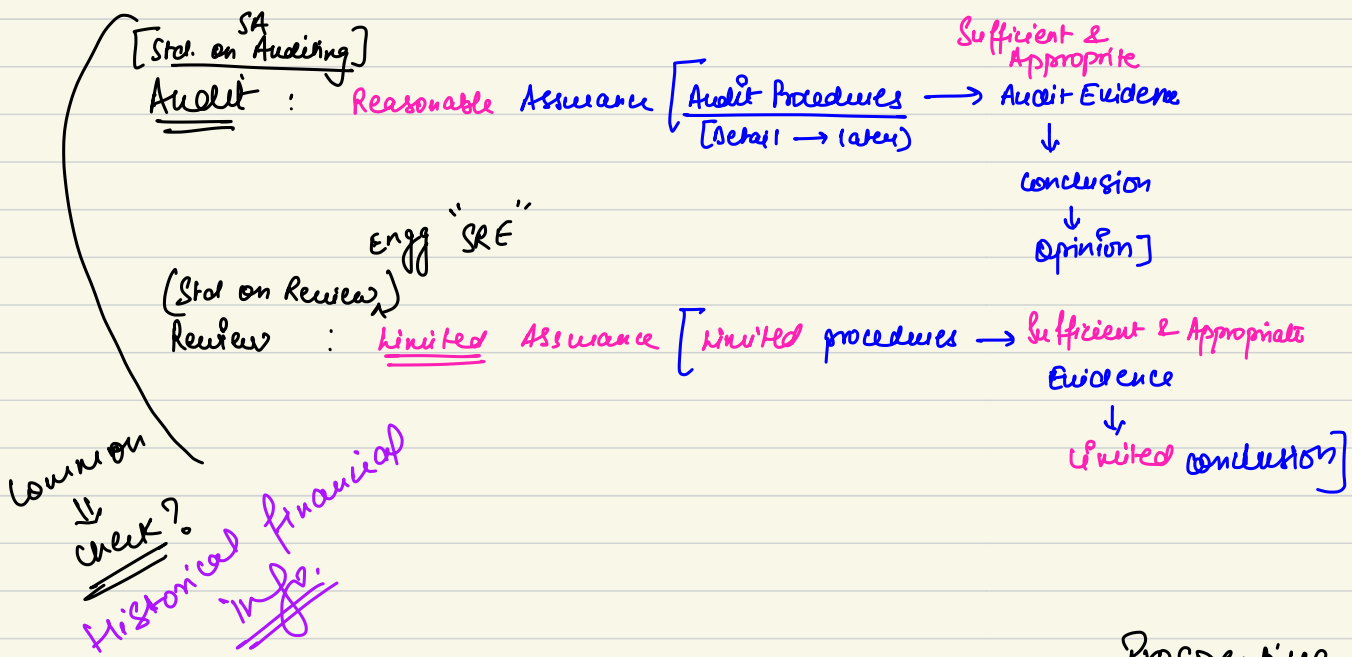 SA
[Std. on Auditing]
Audit : Reasonable Assurance [Audit Procedures → Sufficient & Approprite Audit Evidence
[Detail → later)
↓
Conclusion
↓
Opinion]
Engg "SRE"
(Std on Review)
Review : Limited Assurance [Limited procedures → Sufficient & Appropriate
Evidence
↓
Limited conclusion]
Common
⇓
Check?
Historical financial
info.